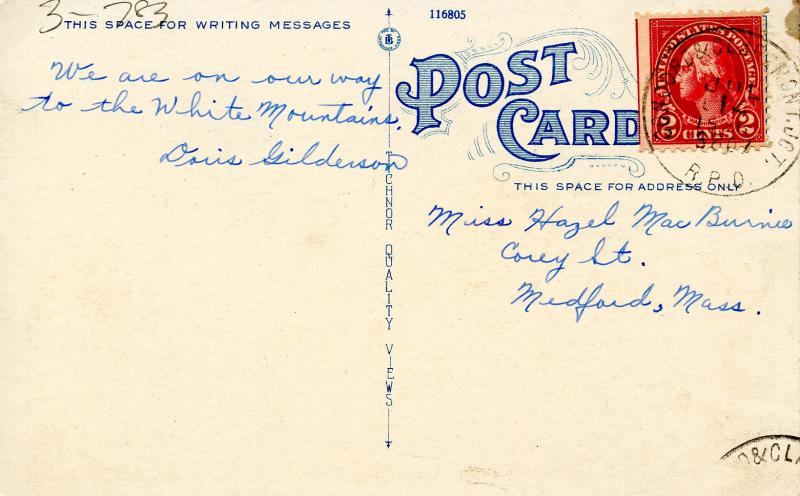 3-783
THIS SPACE FOR WRITING MESSAGES
116805
We are on our way
to the White Mountains.
Doris Gilderson
POST
CARD
THIS SPACE FOR ADDRESS ONLY
UNITED STATES POSTAGE
2 CENTS 2
JUL
14
R.P.O.
MONT. JCT.
Miss Hazel MacBurnie
Corey St.
Medford, Mass.
TICHNOR QUALITY VIEWS
&CL